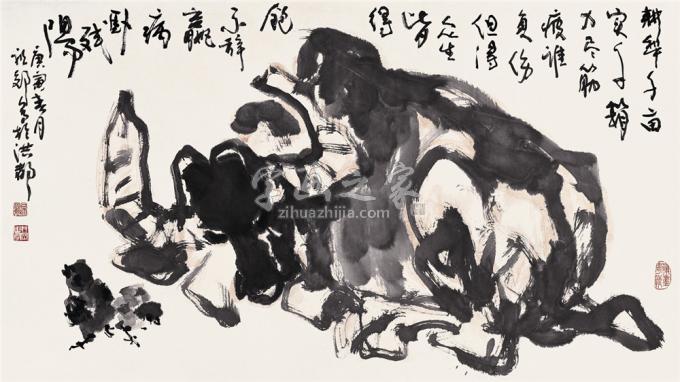 耕犁千亩
实千箱
力尽筋
疲谁
复伤
但得
众生
皆
得
饱
不辞
羸
病
卧
残
阳
庚寅春月
於洪都
字画之家
zihuazhijia.com